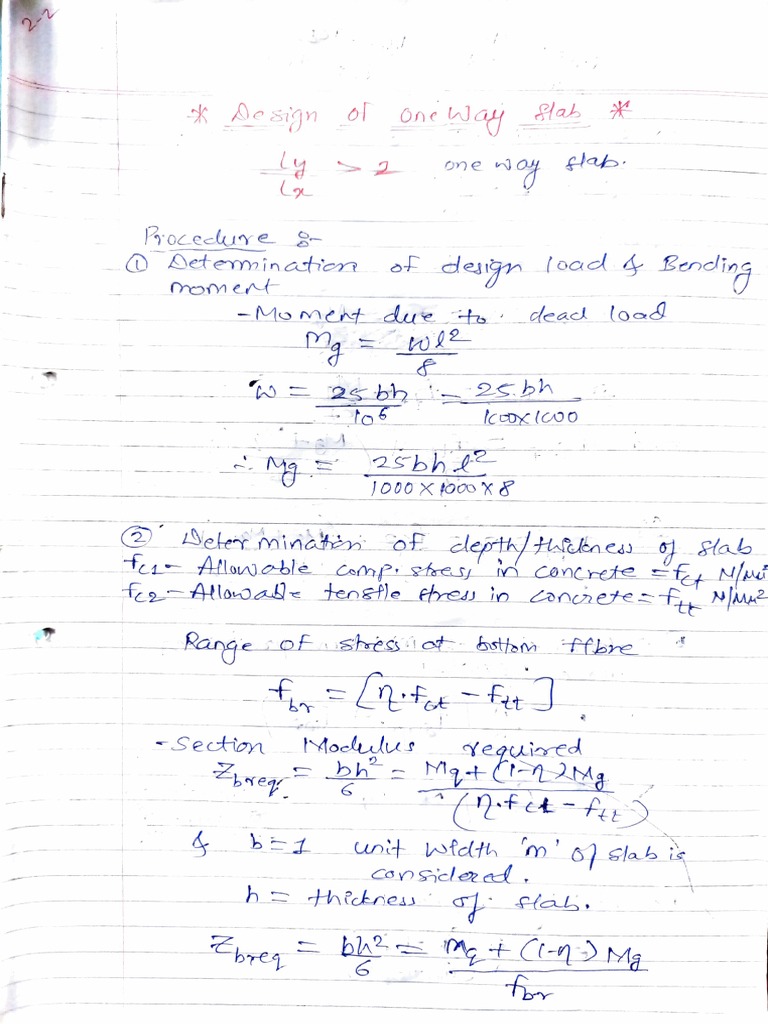 2-2
* Design of one Way Slab *
ly/lx > 2 one way slab.
Procedure :-
① Determination of design load & Bending
moment
- Moment due to dead load
Mg = wl²/8
w = 25bh/10⁶ = 25.bh/1000×1000
∴ Mg = 25bhl²/1000×1000×8
② Determination of depth/thickness of slab
fc1 - Allowable comp. stress in concrete = fct N/mm²
fc2 - Allowable tensile stress in concrete = ftt N/mm²
Range of stress at bottom fibre
fbr = [η.fct - ftt]
- Section Modulus required
Zbreq. = bh²/6 = Mq+(1-η)Mg/(η.fct - ftt)
& b=1 unit width 'm' of slab is
considered.
h = thickness of slab.
Zbreq = bh²/6 = Mq + (1-η)Mg/fbr